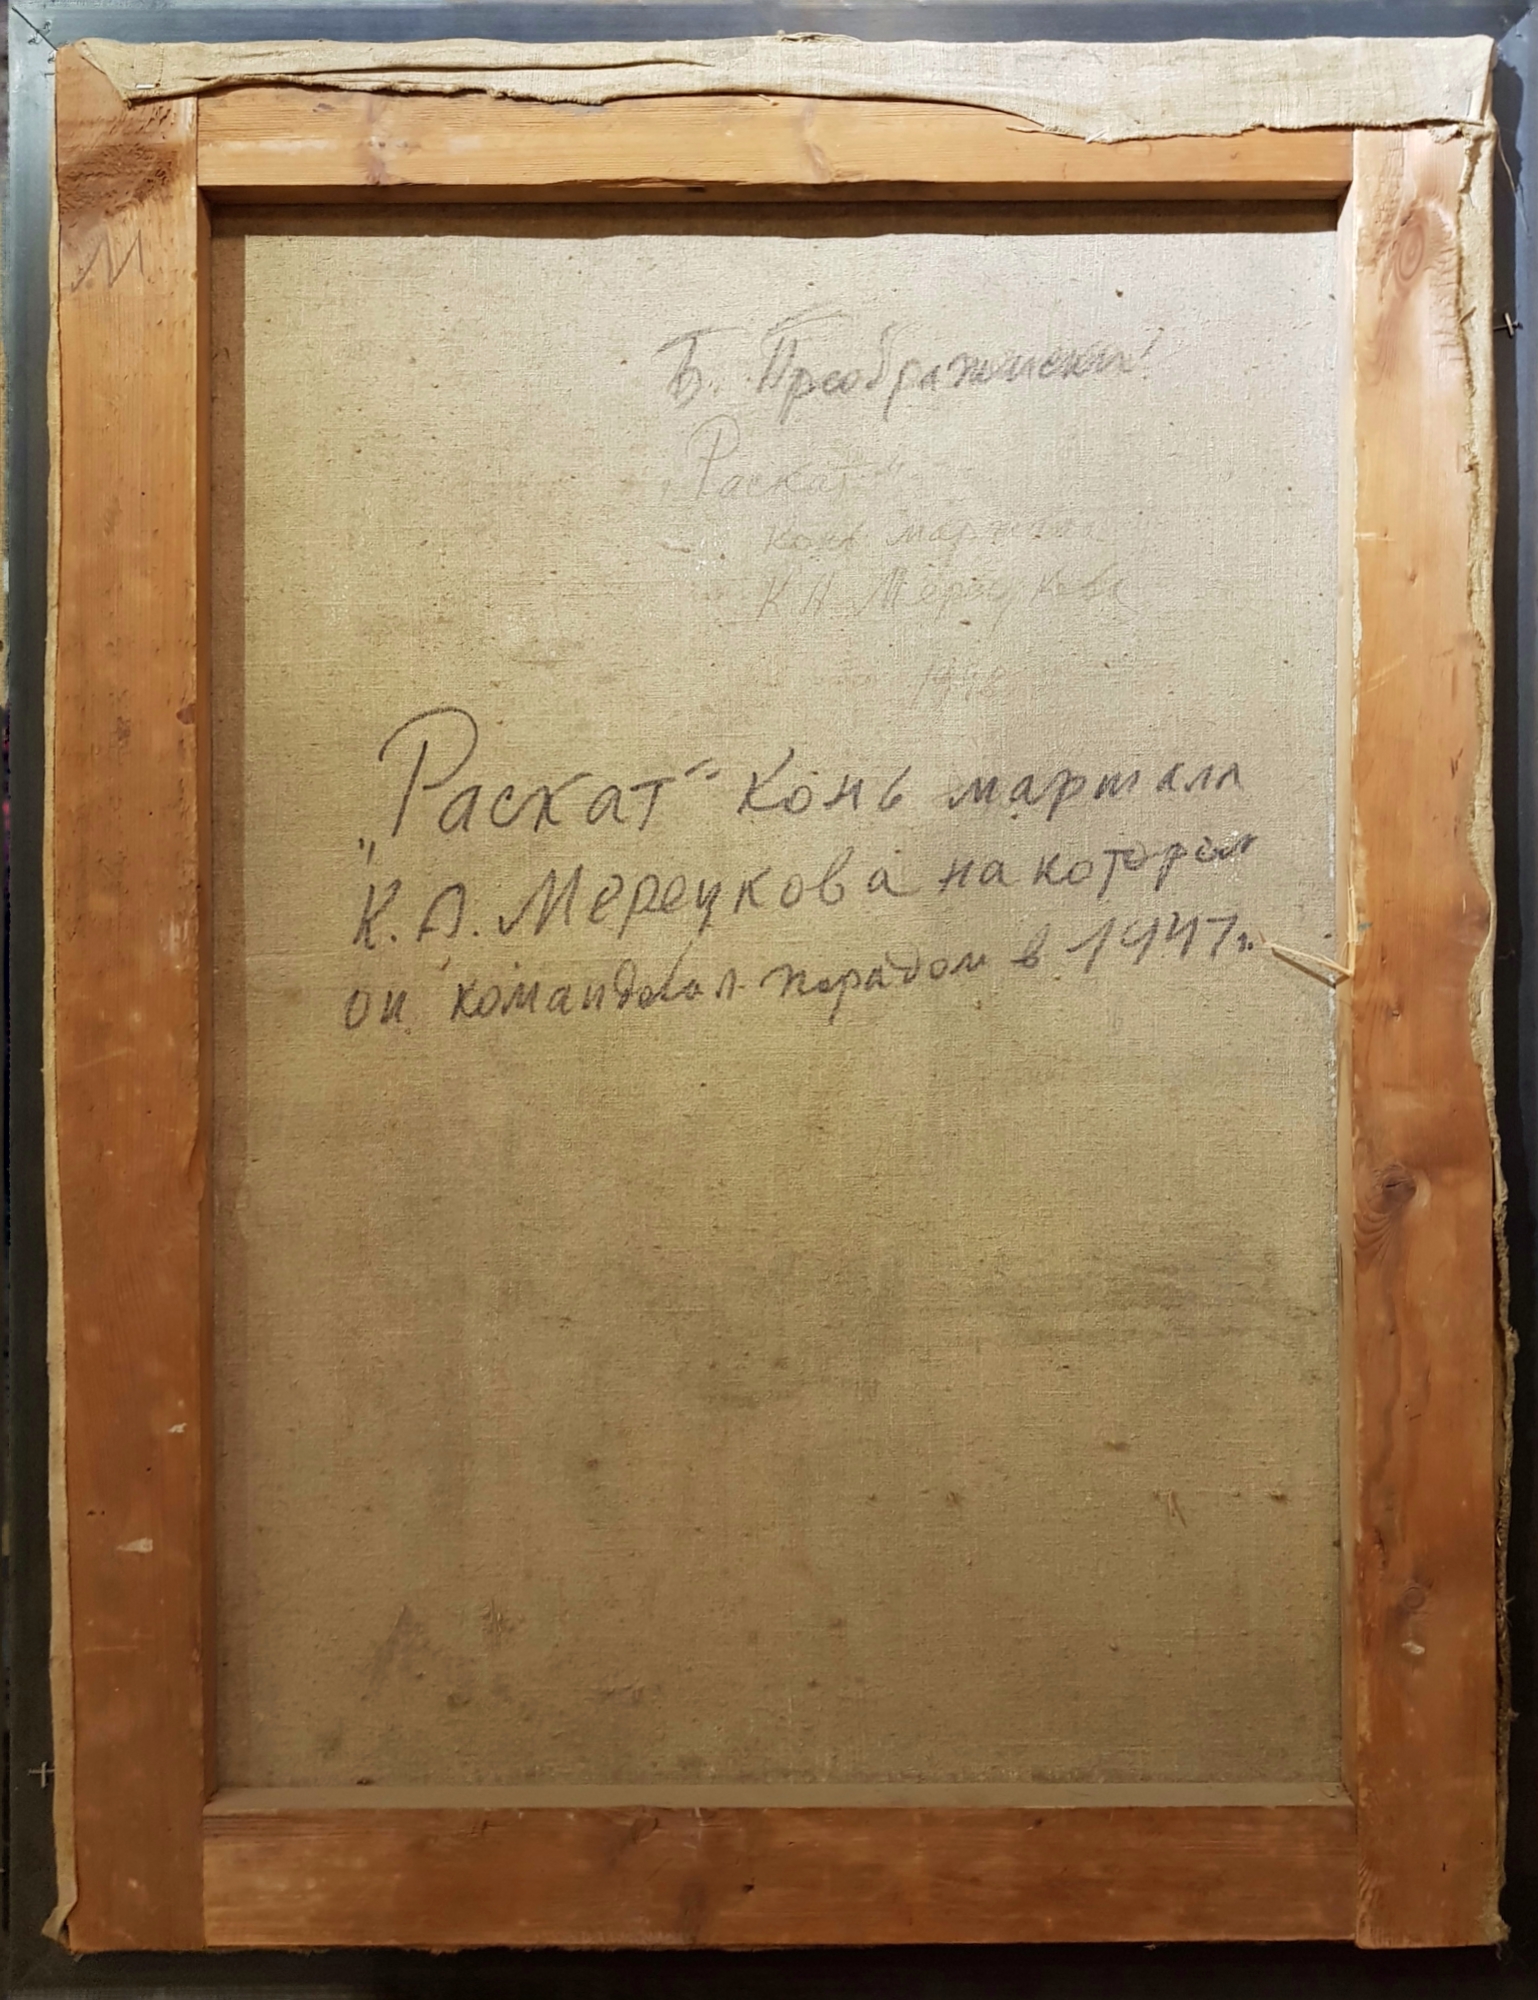 М
Б. Преображенский
„Раскат“
конь маршала
К А Мерецкова
1948
„Раскат“ Конь маршала
К. А. Мерецкова на котором
он командовал парадом в 1947г.